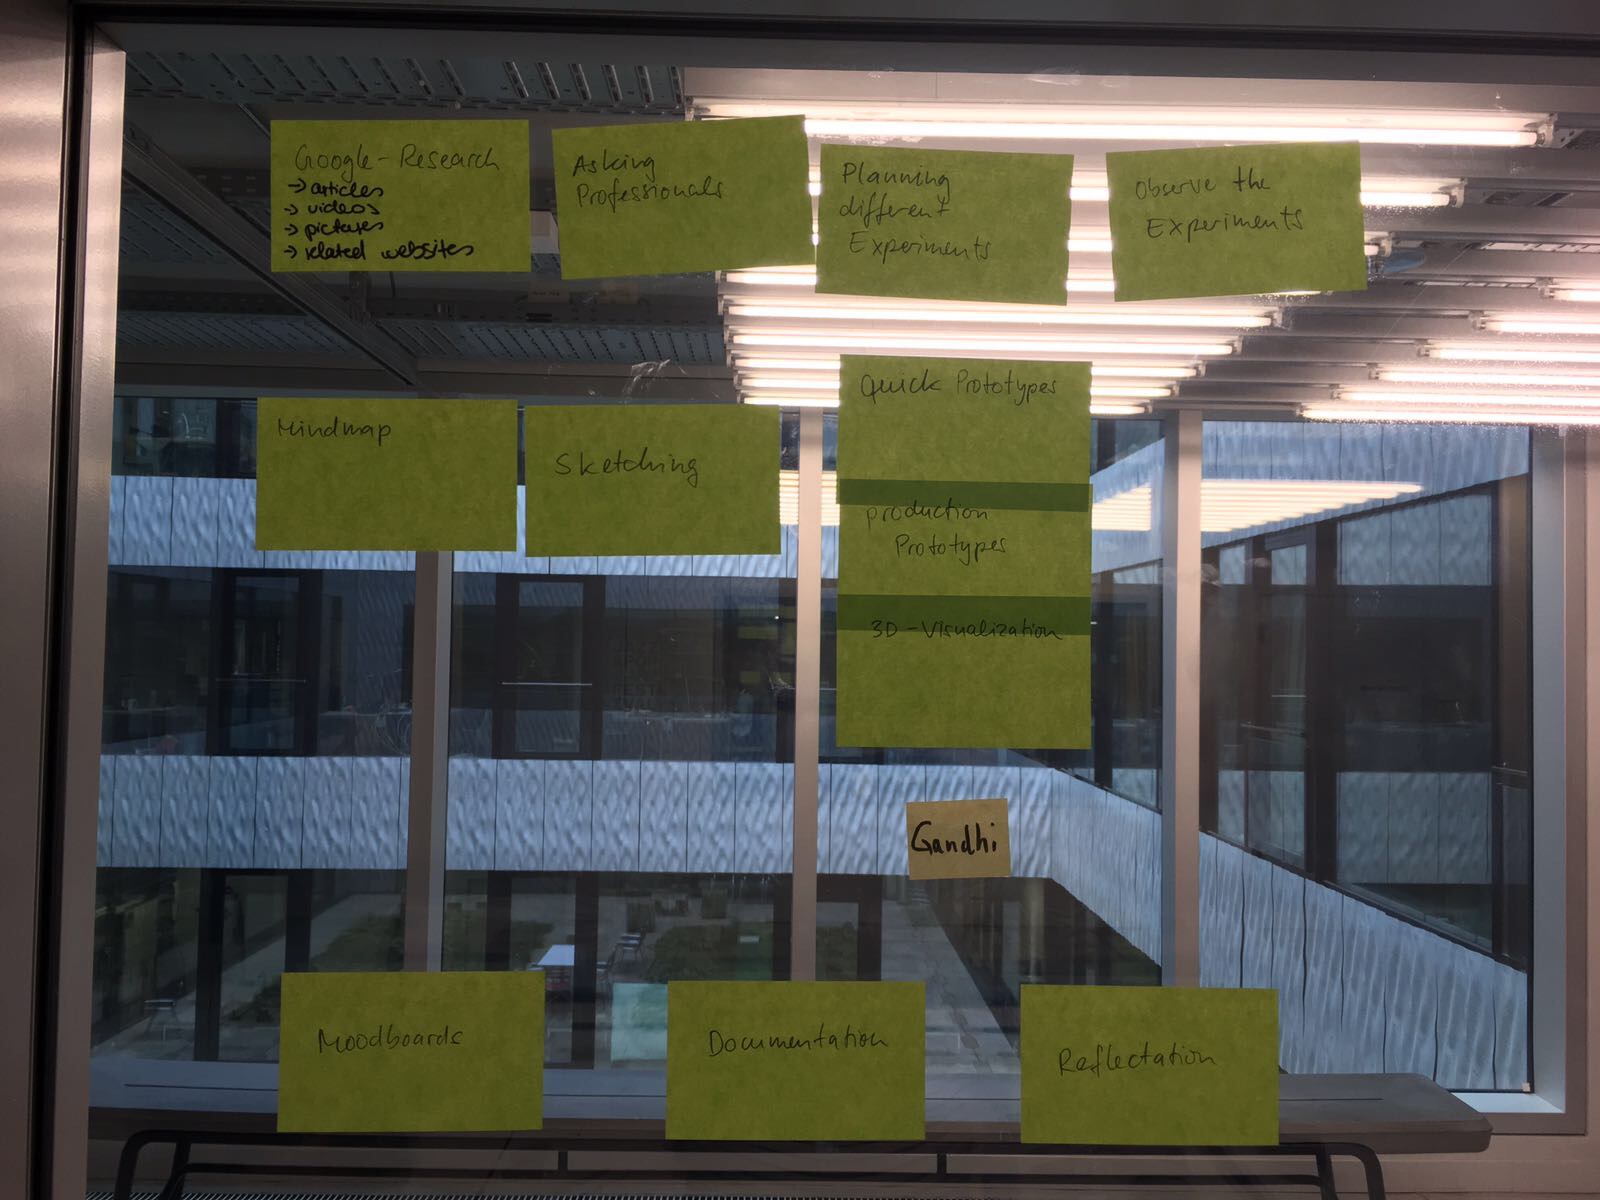 Google-Research
→ articles
→ videos
→ pictures
→ related websites
Asking
Professionals
Planning
different
Experiments
Observe the
Experiments
Mindmap
Sketching
Quick Prototypes
production
Prototypes
3D-Visualization
Gandhi
Moodboards
Documentation
Reflectation